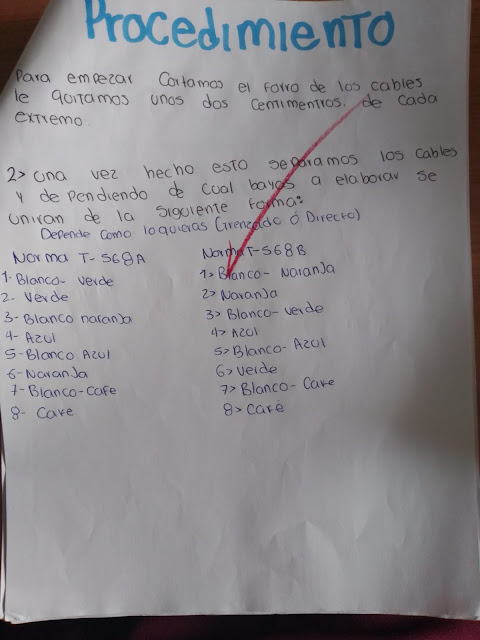 Procedimiento
Para empezar Cortamos el forro de los cables
le quitamos unos dos centimentros. de cada
extremo.
2> una vez hecho esto separamos los cables
y de pendiendo de cual bayas a elaborar se
uniran de la siguiente forma:
Depende como lo quieras (renzado ó Directo)
Norma T-568A
1- Blanco- verde
2- Verde
3- Blanco naranja
4- Azul
5- Blanco Azul
6- Naranja
7- Blanco-Cafe
8- Cafe
Norma T-568B
1> Blanco- Naranja
2> Naranja
3> Blanco- verde
4> Azul
5> Blanco- Azul
6> Verde
7> Blanco- Cafe
8> Café